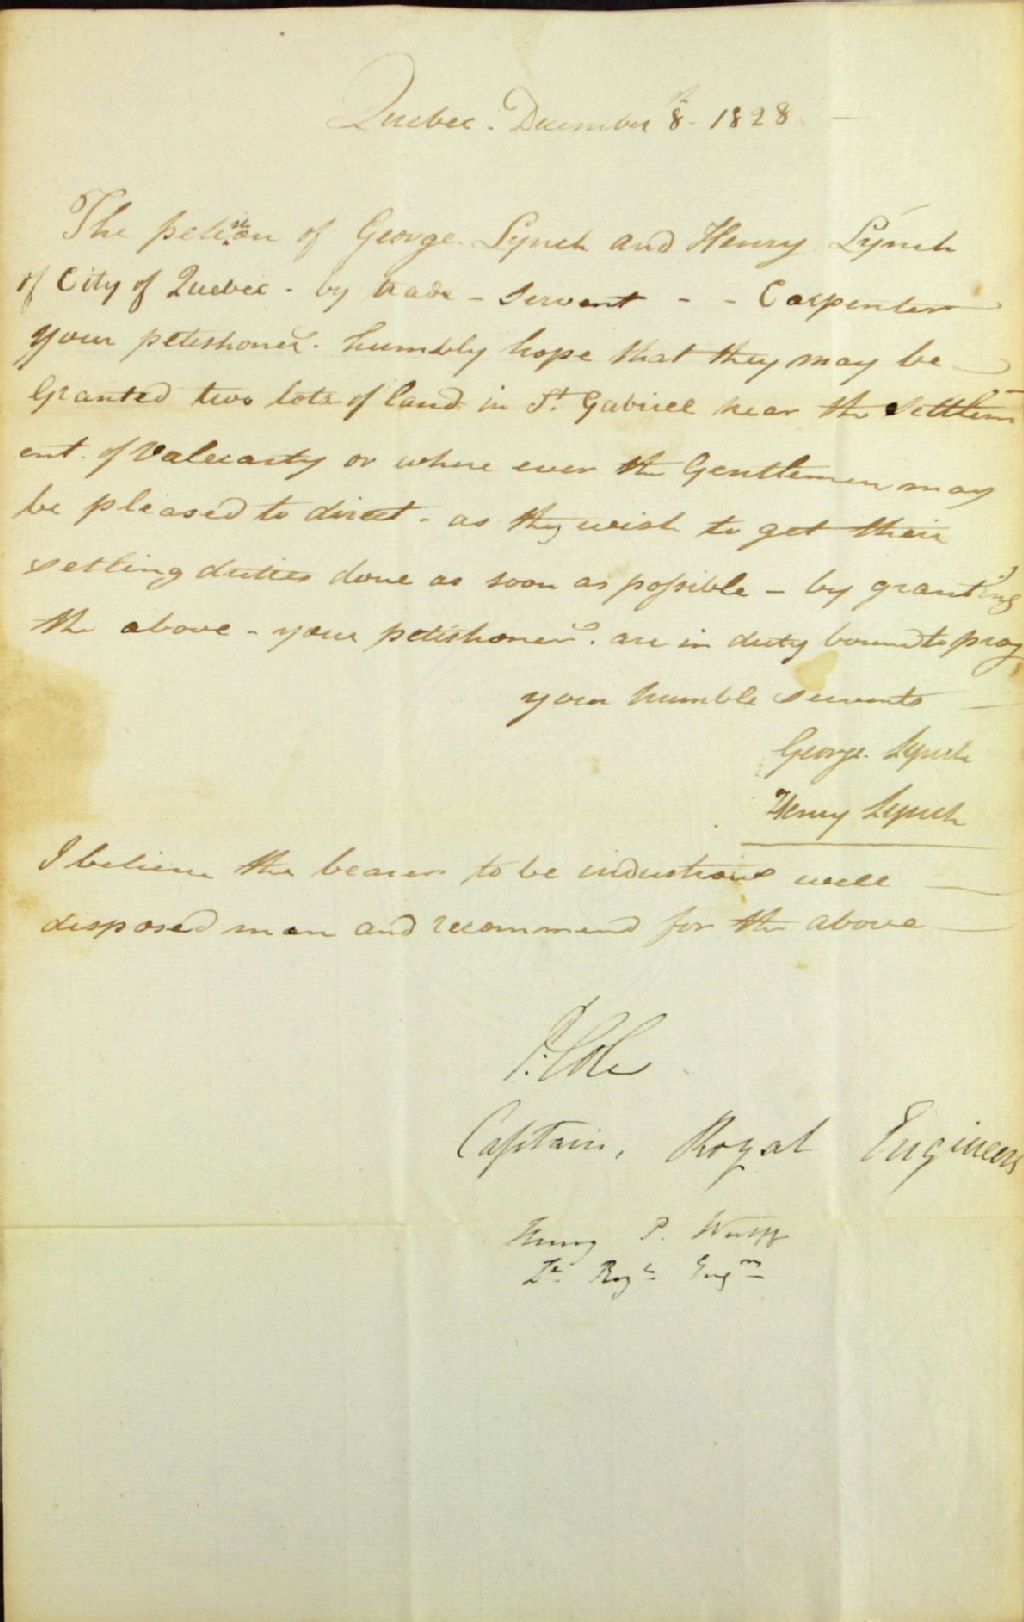 Quebec. December 8th 1828
The petision of George Lynch and Henry Lynch
of City of Quebec - by trade - Servent - - Carpenter
your petishoners humbly hope that they may be
Granted two lots of land in St. Gabriel near the Settlem
ent of Valecarty or where ever the Gentlemen may
be pleased to direct - as they wish to get their
setling duties done as soon as possible - by granting
the above - your petishoners are in duty bound to pray
your humble servents
George Lynch
Henry Lynch
I believe the bearer to be industrious well
disposed man and recommend for the above
P. Cole
Captain, Royal Engineers
Henry P. Wulff
Lt. Royl. Engrs